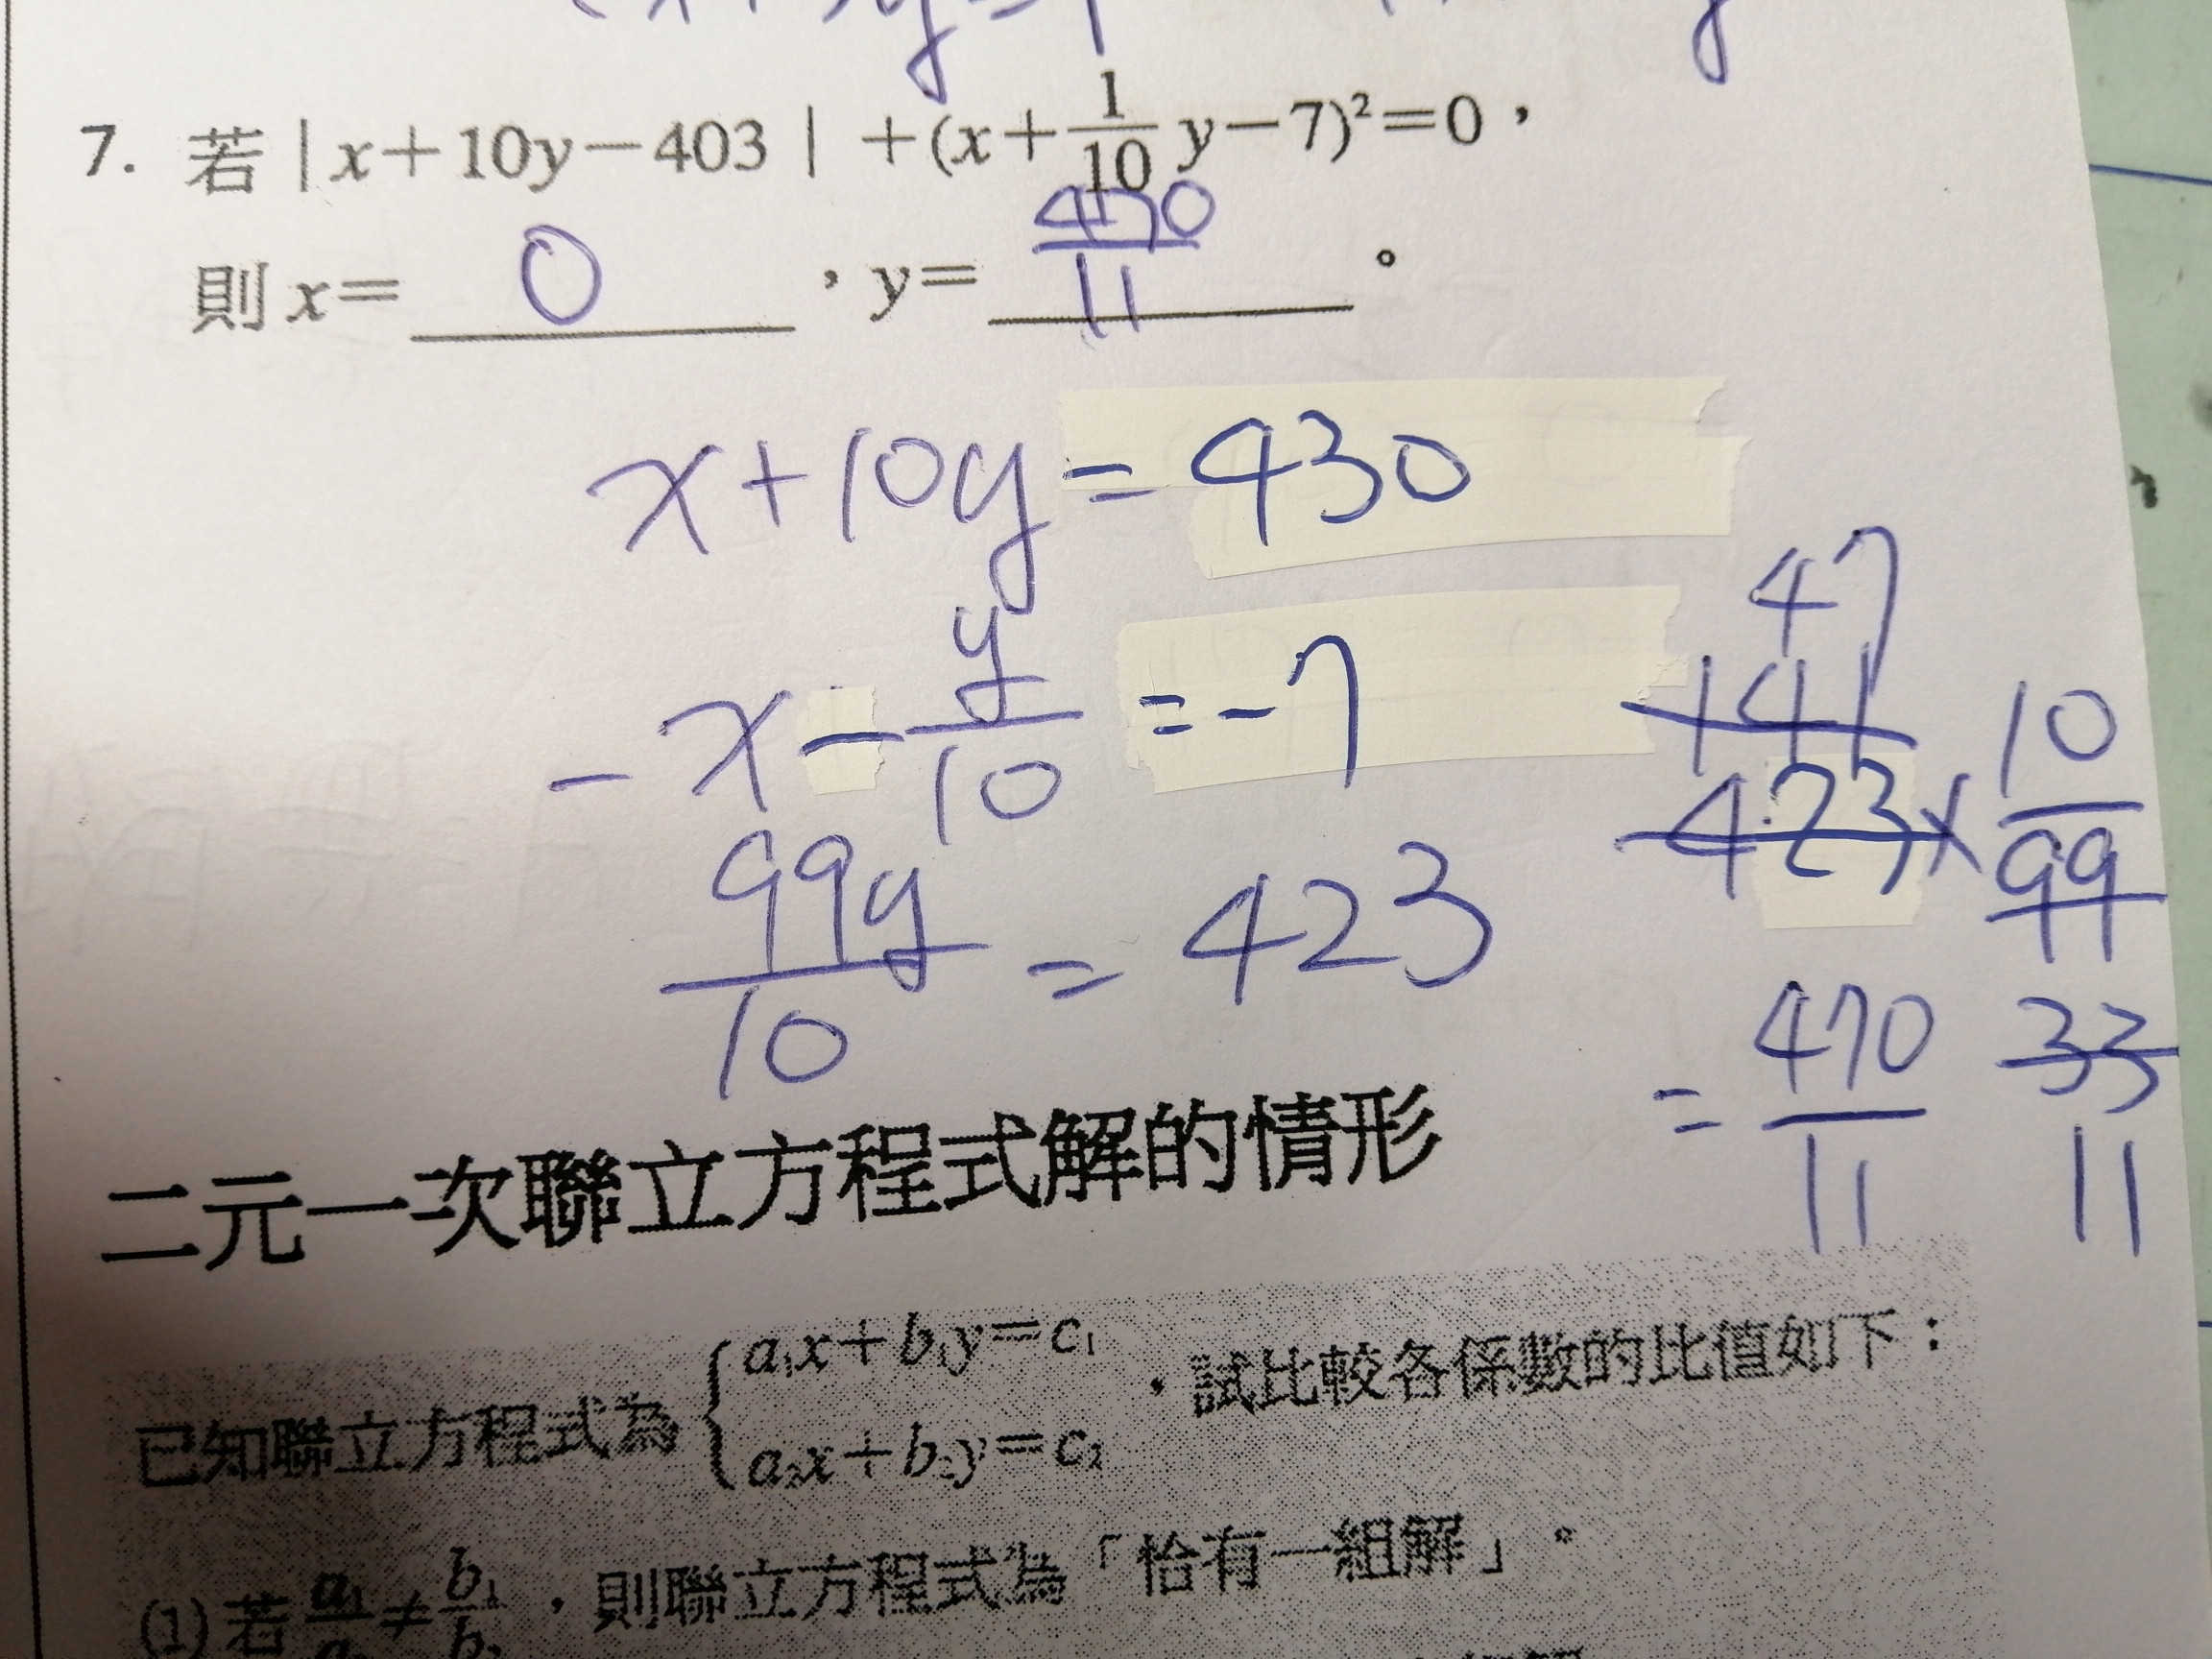 7. 若 | x＋10y－403 | ＋(x＋1/10 y－7)²＝0，
則 x＝ 0 ，y＝ 470/11 。
x+10y = 430
-x - y/10 = -7
99y/10 = 423
47
141
423 × 10/99
33
= 470/11
11
二元一次聯立方程式解的情形
已知聯立方程式為 { a₁x＋b₁y＝c₁ ，試比較各係數的比值如下：
a₂x＋b₂y＝c₂
(1) 若 a₁/a₂ ≠ b₁/b₂ ，則聯立方程式為「恰有一組解」。